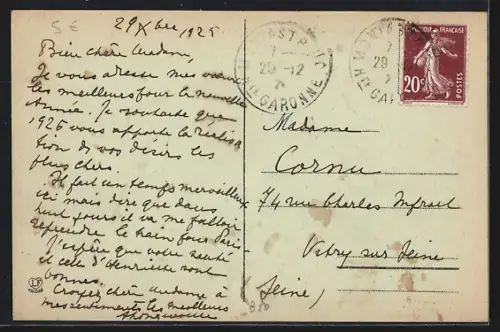 5 €
29 Xbre 1925
Bien chère Madame,
Je vous adresse mes vœux
les meilleurs pour la nouvelle
Année. Je souhaite que
1926 vous apporte la réalisa
tion de vos désirs les
plus chers.
Il fait un temps merveilleux
ici mais dire que dans
huit jours il va me falloir
reprendre le train pour Paris
J'espère que votre santé
et celle d'Henriette sont
bonnes.
Croyez chère Madame à
mes sentiments les meilleurs
LF
7
29 -12
HTE GARONNE
7
29
HTE GA
REPUBLIQUE FRANÇAISE
20c
POSTES
Madame
Cornu
74 rue Charles Infroit
Vitry sur Seine
(Seine)